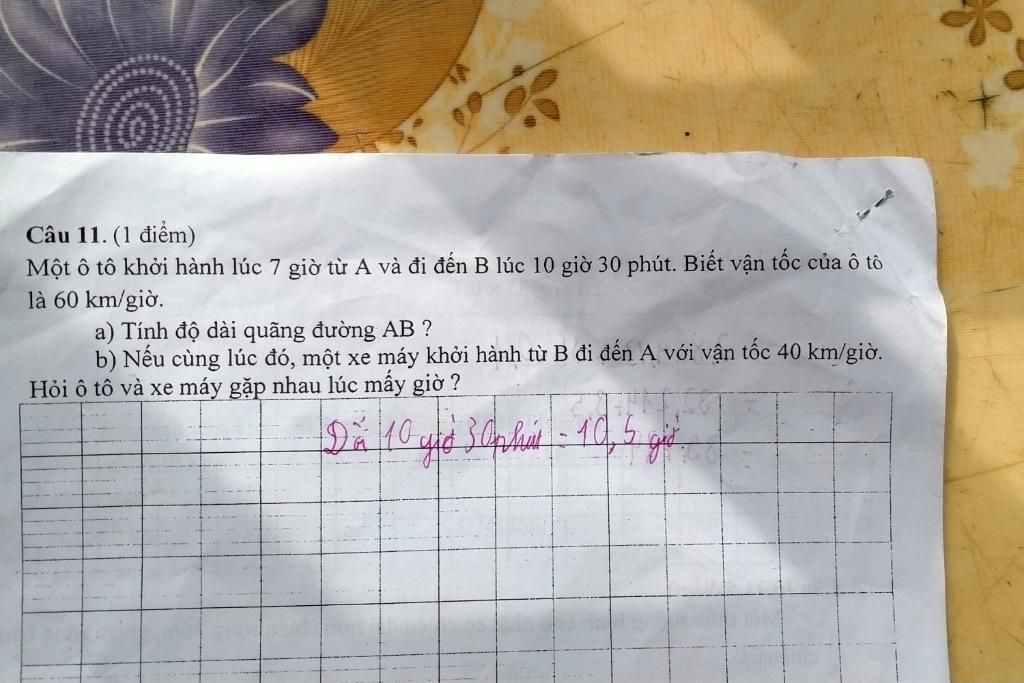 Câu 11. (1 điểm)
Một ô tô khởi hành lúc 7 giờ từ A và đi đến B lúc 10 giờ 30 phút. Biết vận tốc của ô tô
là 60 km/giờ.
a) Tính độ dài quãng đường AB ?
b) Nếu cùng lúc đó, một xe máy khởi hành từ B đi đến A với vận tốc 40 km/giờ.
Hỏi ô tô và xe máy gặp nhau lúc mấy giờ ?
Đổi 10 giờ 30 phút = 10,5 giờ